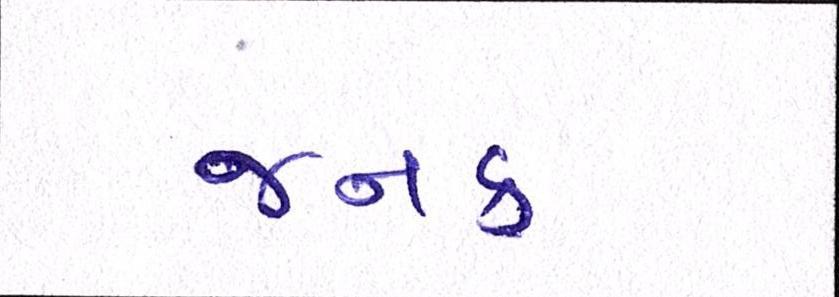 જનક